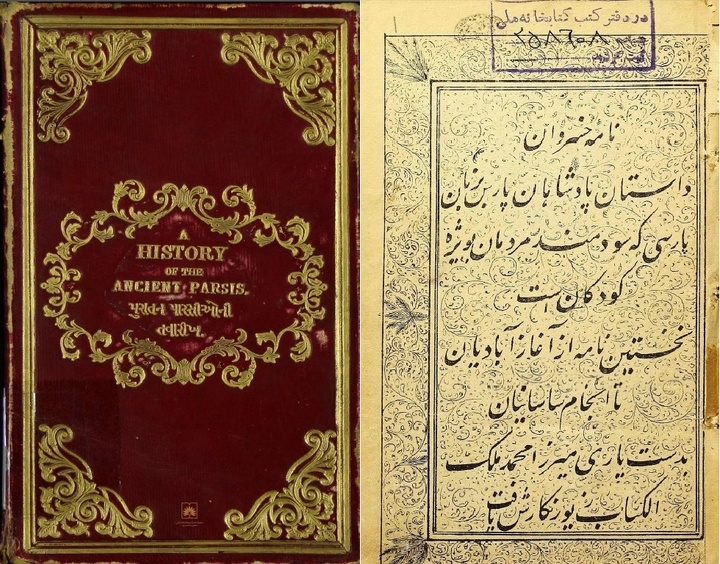 A
HISTORY
OF THE
ANCIENT PARSIS.
પુરાતન પારસીઓની
તવારીખ.
در دفتر کتب کتابخانه ملی
۲۵۸۶۰۸
۱
نامه خسروان
داستان پادشاهان پارس بزبان
پارسی که سودمند مردمان بویژه
کودکان است
نخستین نامه از آغاز آبادیان
تا انجام ساسانیان
بدست یاری میرزا محمد ملک
الکتاب زیور نگارش یافت